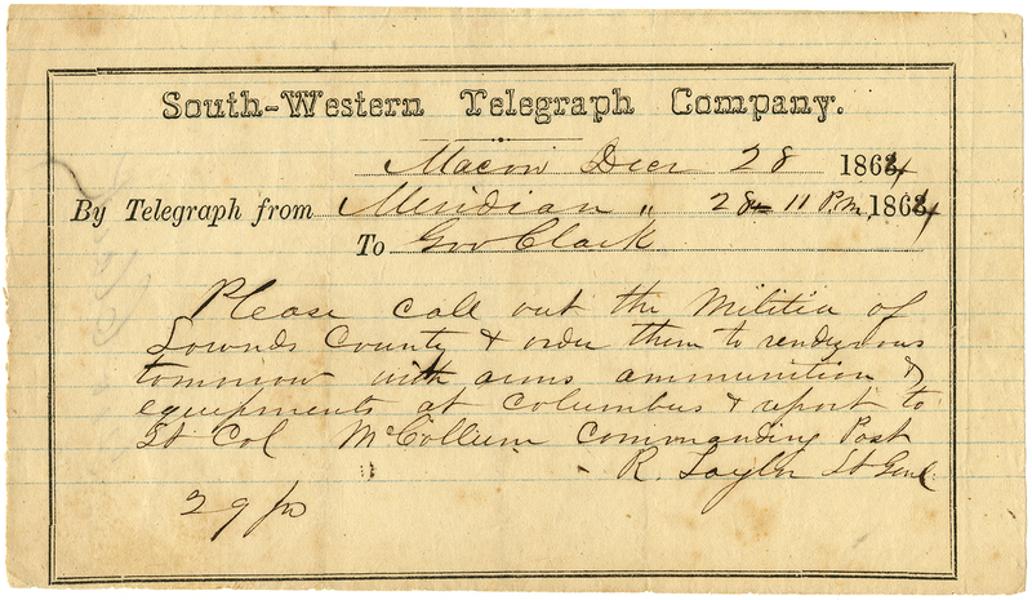 South-Western Telegraph Company.
Macon Decr 28 1864
By Telegraph from Meridian " 28 11 P.M. 1864
To Gov Clark
Please call out the Militia of
Lownds County & order them to rendezvous
tomorrow with arms ammunition &
equipments at Columbus & report to
Lt Col McCollum Commanding Post
R. Taylor Lt Genl
29 pd